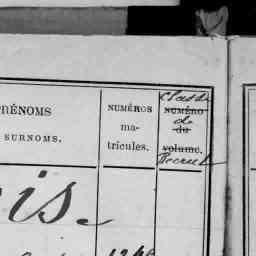 PRÉNOMS
SURNOMS.
NUMÉROS
ma-
tricules.
Classe
NUMÉRO
de
du
volume.
Recrut
is.